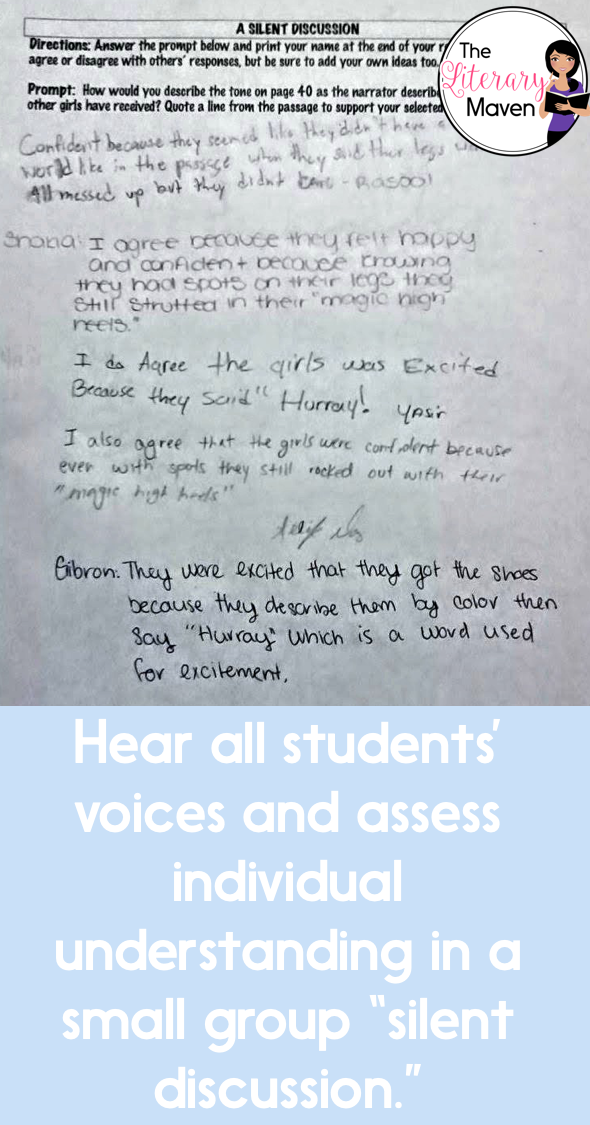 A SILENT DISCUSSION
Directions: Answer the prompt below and print your name at the end of your
agree or disagree with others' responses, but be sure to add your own ideas too.
Prompt: How would you describe the tone on page 40 as the narrator
other girls have received? Quote a line from the passage to support your selected
The
Literary
Maven
Confident because they seemed like they didn't have a
world like in the passage when they said their legs
All messed up but they didnt care - Rasool
I agree because they felt happy
and confident because knowing
they had spots on their legs they
still strutted in their "magic high
heels."
I do Agree the girls was Excited
Because they said "Hurray! Yasir
I also agree that the girls were confident because
even with spots they still rocked out with their
"magic high heels"
Gibron: They were excited that they got the shoes
because they describe them by color then
say "Hurray" which is a word used
for excitement.
Hear all students'
voices and assess
individual
understanding in a
small group "silent
discussion."